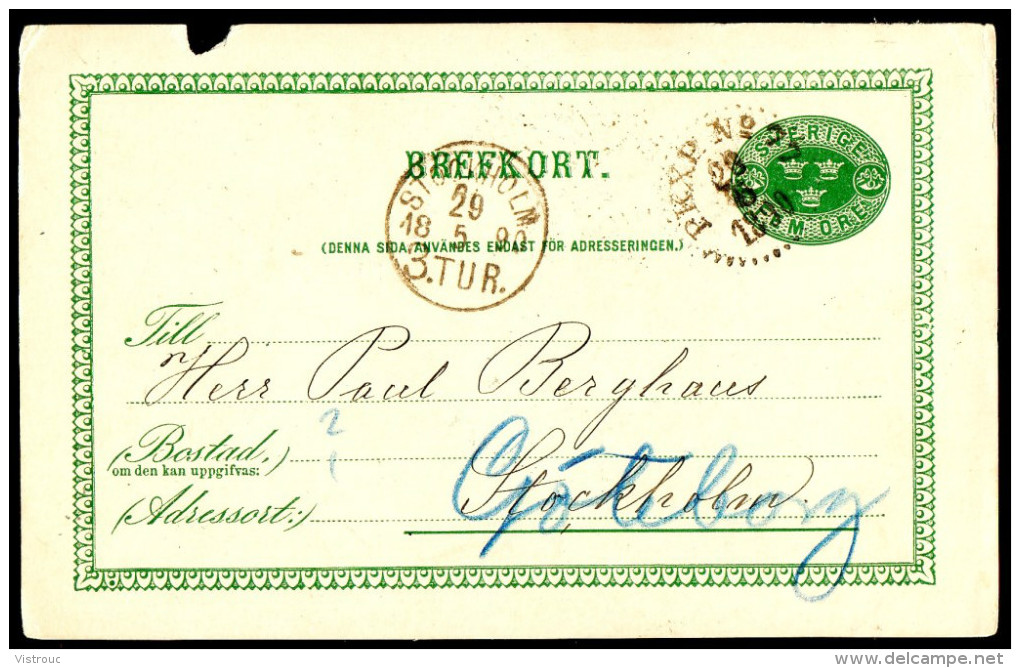 BREFKORT.
(DENNA SIDA ANVÄNDES ENDAST FÖR ADRESSERINGEN.)
SVERIGE
FEM ÖRE
PKXP. No
STOCKHOLM
29
18 5 90
3.TUR.
Till
Herr Paul Berghaus
2
1
(Bostad,)
om den kan uppgifvas:
(Adressort:)
Stockholm.
Göteborg
Vistrouc
www.delcampe.net